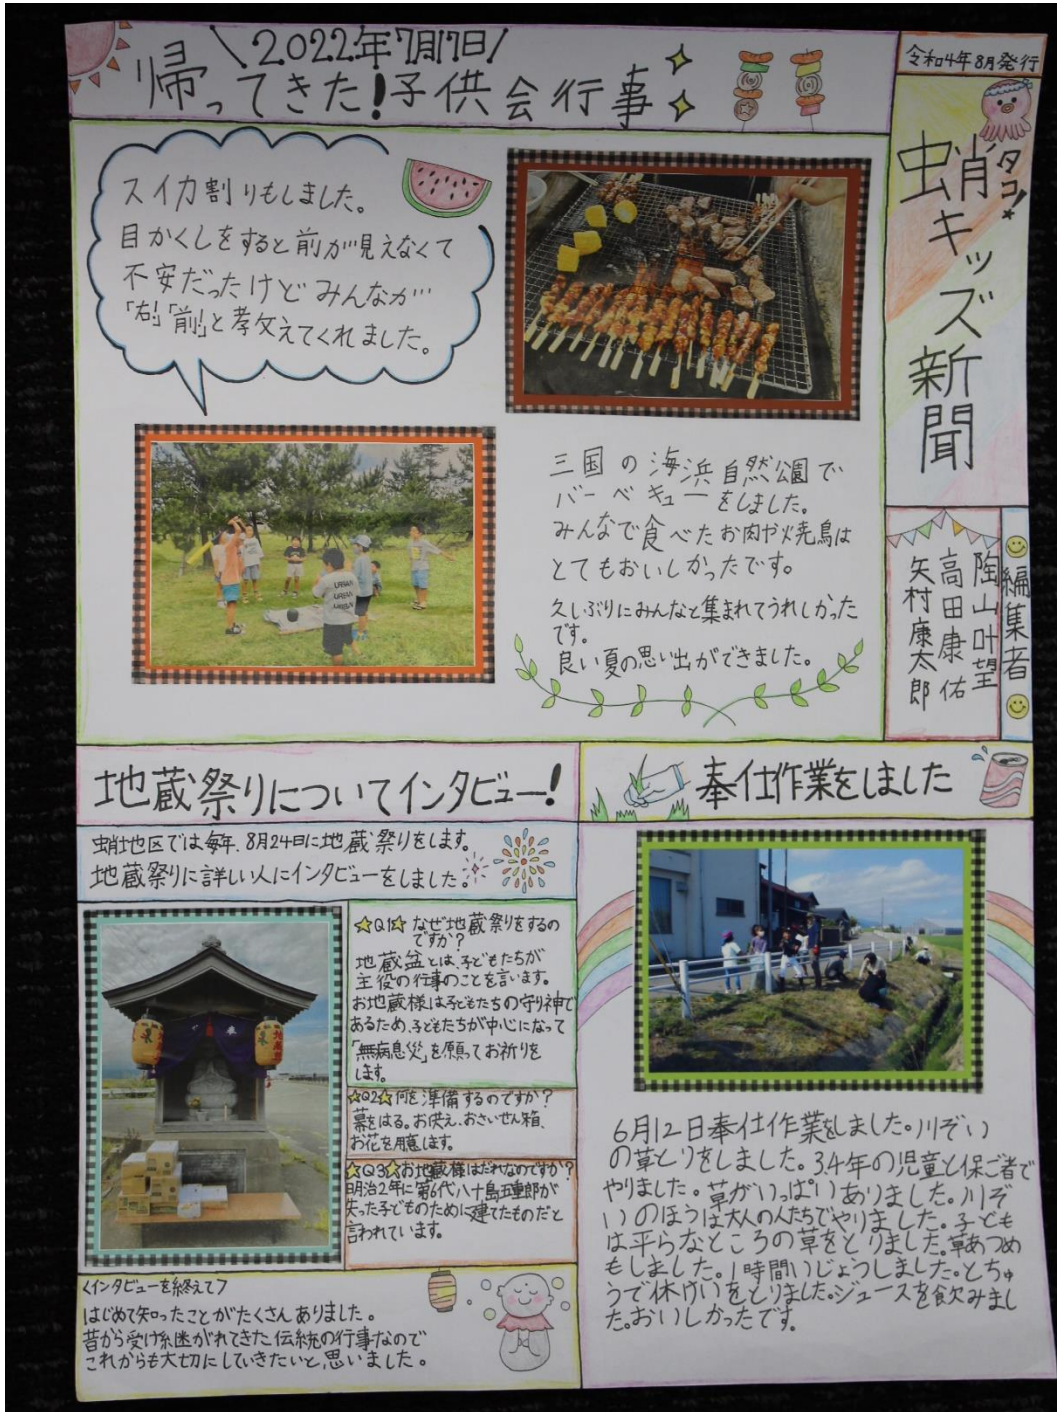 令和4年8月発行
蛸キッズ新聞
タコ!
編集者
陶山叶望
高田康佑
矢村康太郎
2022年7月17日
帰ってきた!子供会行事
スイカ割りもしました。
目かくしをすると前が見えなくて
不安だったけどみんなが
「右」「前」と教えてくれました。
URBAN
URBAN
URBAN
三国の海浜自然公園で
バーベキューをしました。
みんなで食べたお肉や焼鳥は
とてもおいしかったです。
久しぶりにみんなと集まれてうれしかった
です。
良い夏の思い出ができました。
地蔵祭りについてインタビュー!
蛸地区では毎年、8月24日に地蔵祭りをします。
地蔵祭りに詳しい人にインタビューをしました。
☆Q1☆なぜ地蔵祭りをするの
ですか?
地蔵盆とは、子どもたちが
主役の行事のことを言います。
お地蔵様は子どもたちの守り神で
あるため、子どもたちが中心になって
「無病息災」を願ってお祈りを
します。
☆Q2☆何を準備するのですか?
幕をはる。お供え、おさいせん箱、
お花を用意します。
☆Q3☆お地蔵様はだれなのですか?
明治2年に第6代八十島五重郎が
失った子どものために建てたものだと
言われています。
<インタビューを終えて>
はじめて知ったことがたくさんありました。
昔から受け継がれてきた伝統の行事なので
これからも大切にしていきたいと思いました。
奉仕作業をしました
6月12日奉仕作業をしました。川ぞい
の草とりをしました。3.4年の児童と保ご者で
やりました。草がいっぱいありました。川ぞ
いのほうは大人の人たちでやりました。子ども
は平らなところの草をとりました。草あつめ
もしました。1時間いじょうしました。とちゅ
うで休けいをとりました。ジュースを飲みまし
た。おいしかったです。